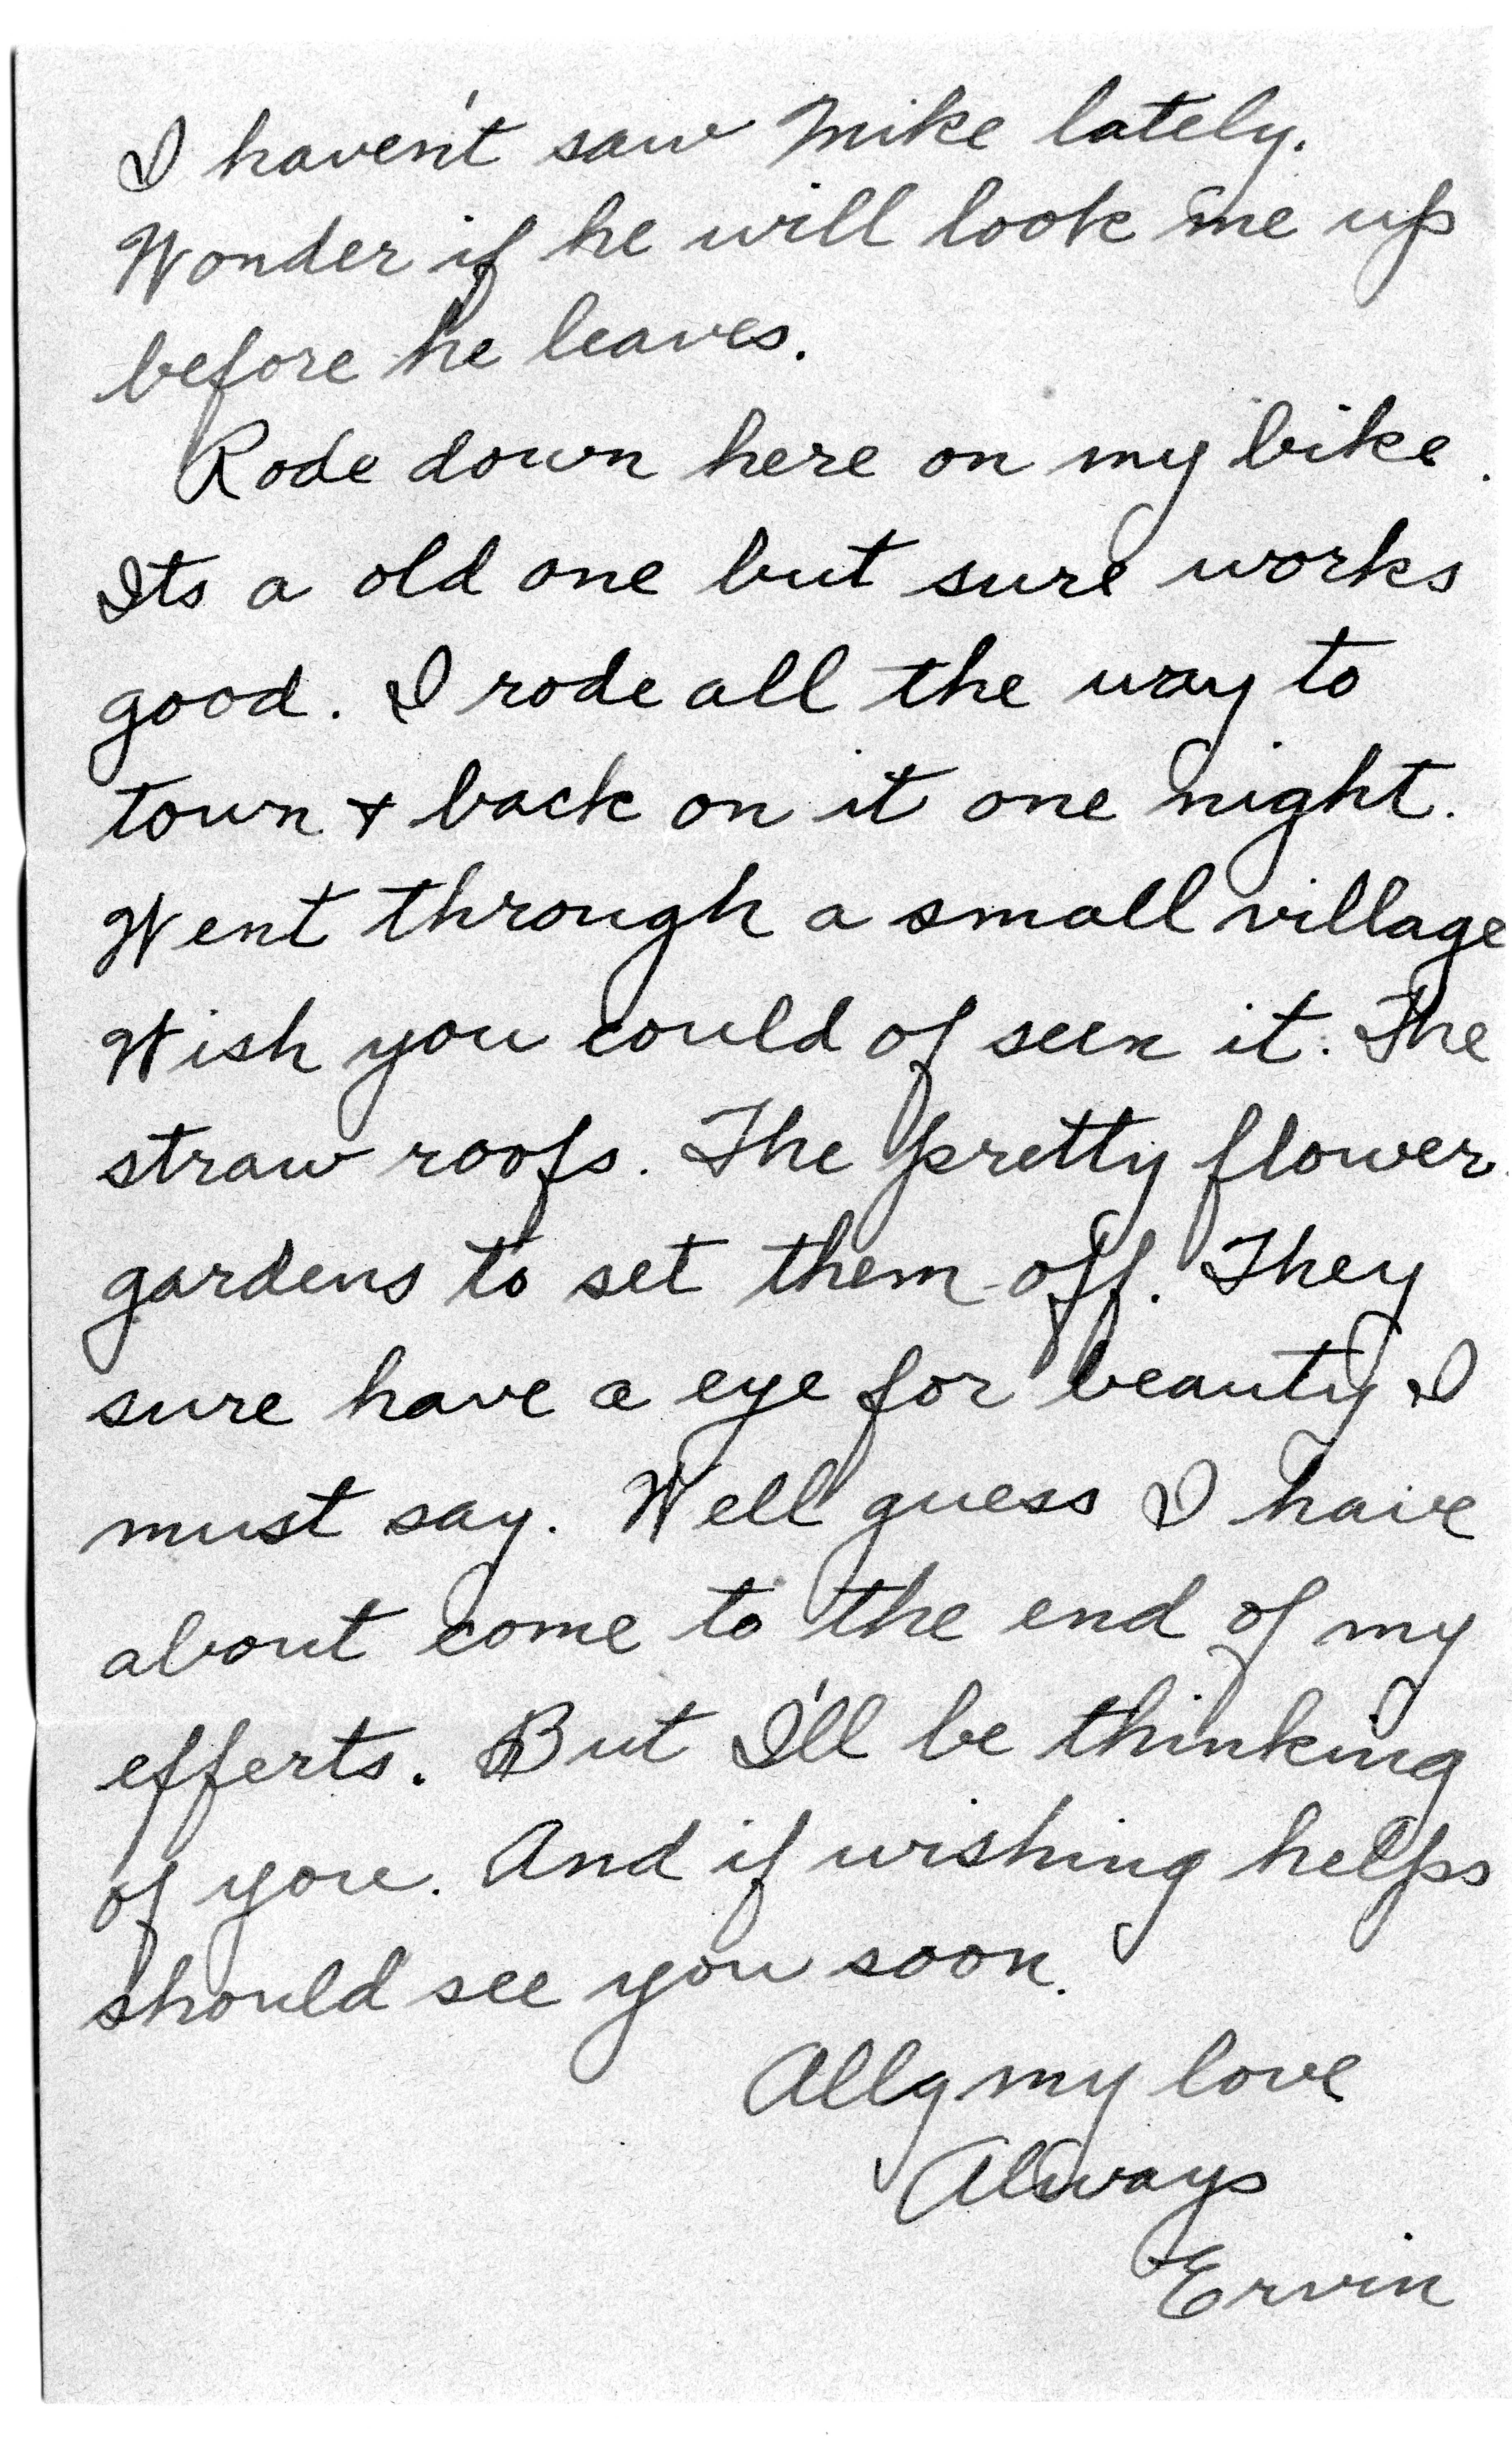 I haven't saw Mike lately.
Wonder if he will look me up
before he leaves.
Rode down here on my bike.
Its a old one but sure works
good. I rode all the way to
town + back on it one night.
Went through a small village
Wish you could of seen it. The
straw roofs. The pretty flower
gardens to set them off. They
sure have a eye for beauty I
must say. Well guess I have
about come to the end of my
efferts. But I'll be thinking
of you. And if wishing helps
should see you soon.
All my love
Always
Ervin